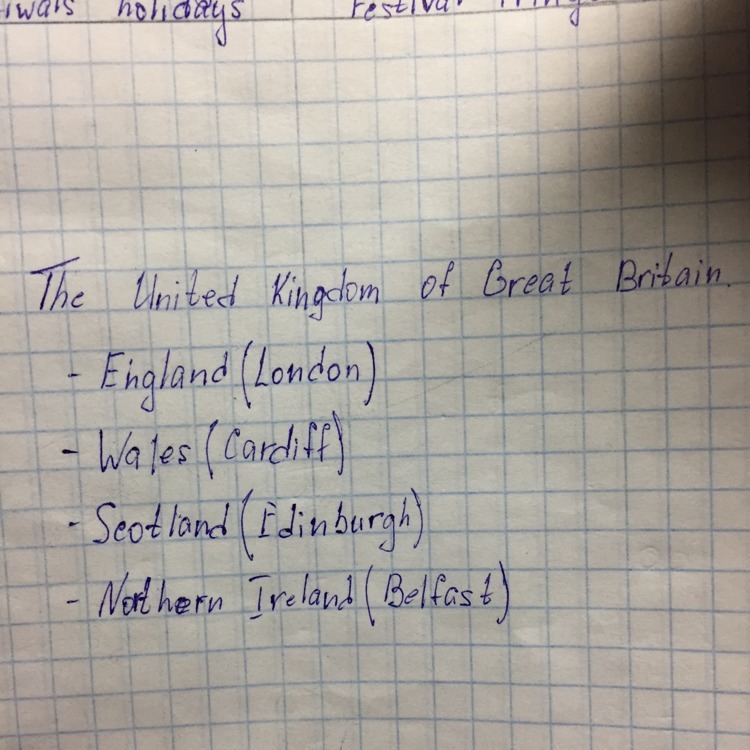 holidays
The United Kingdom of Great Britain.
- England (London)
- Wales (Cardiff)
- Scotland (Edinburgh)
- Northern Ireland (Belfast)